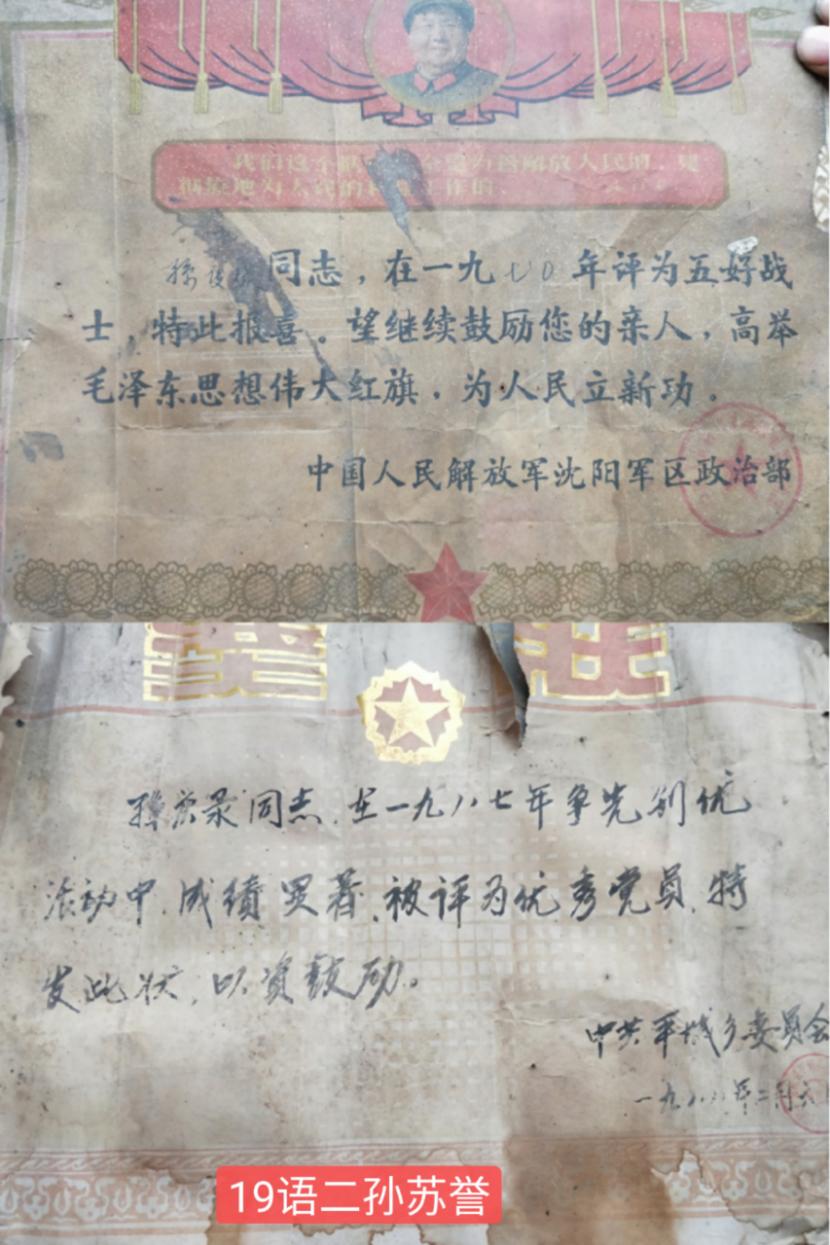 我们这个队伍完全是为着解放人民的，是
彻底地为人民的利益工作的。
同志，在一九七0年评为五好战
士，特此报喜。望继续鼓励您的亲人，高举
毛泽东思想伟大红旗，为人民立新功。
中国人民解放军沈阳军区政治部
同志，在一九八七年争先创优
活动中，成绩显著，被评为优秀党员，特
发此状，以资鼓励。
中共平城乡委员会
一九八八年二月六
19语二孙苏誉